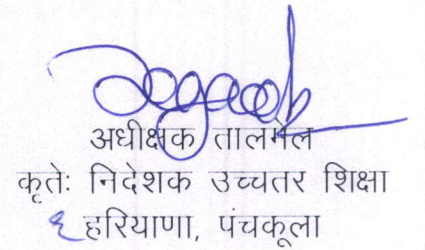 अधीक्षक तालमेल
कृतेः निदेशक उच्चतर शिक्षा
हरियाणा, पंचकूला